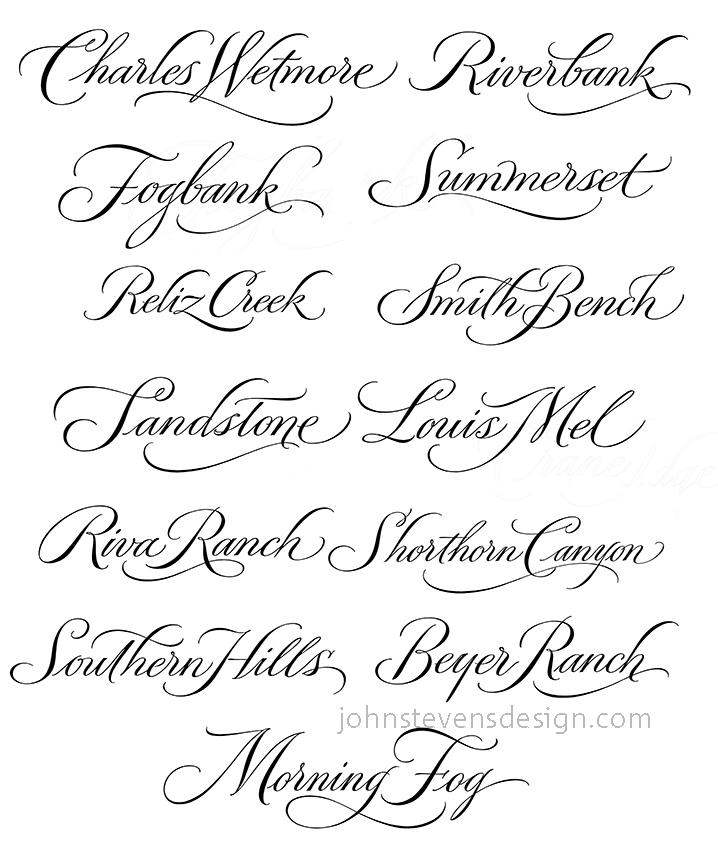 Charles Wetmore Riverbank
Fogbank Summerset
Reliz Creek Smith Bench
Sandstone Louis Mel
Riva Ranch Shorthorn Canyon
Southern Hills Beyer Ranch
johnstevensdesign.com
Morning Fog